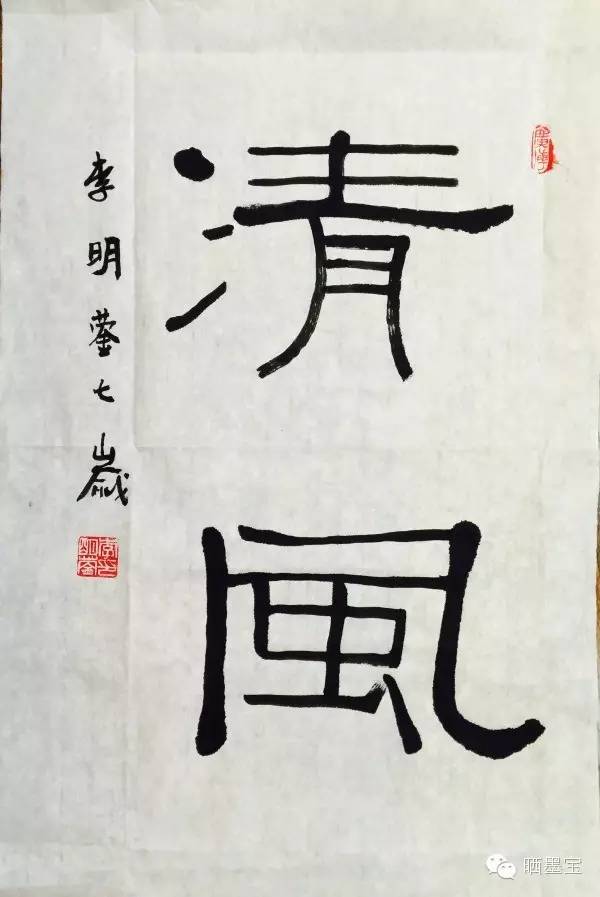 清風
李明蓥七歲
晒墨宝